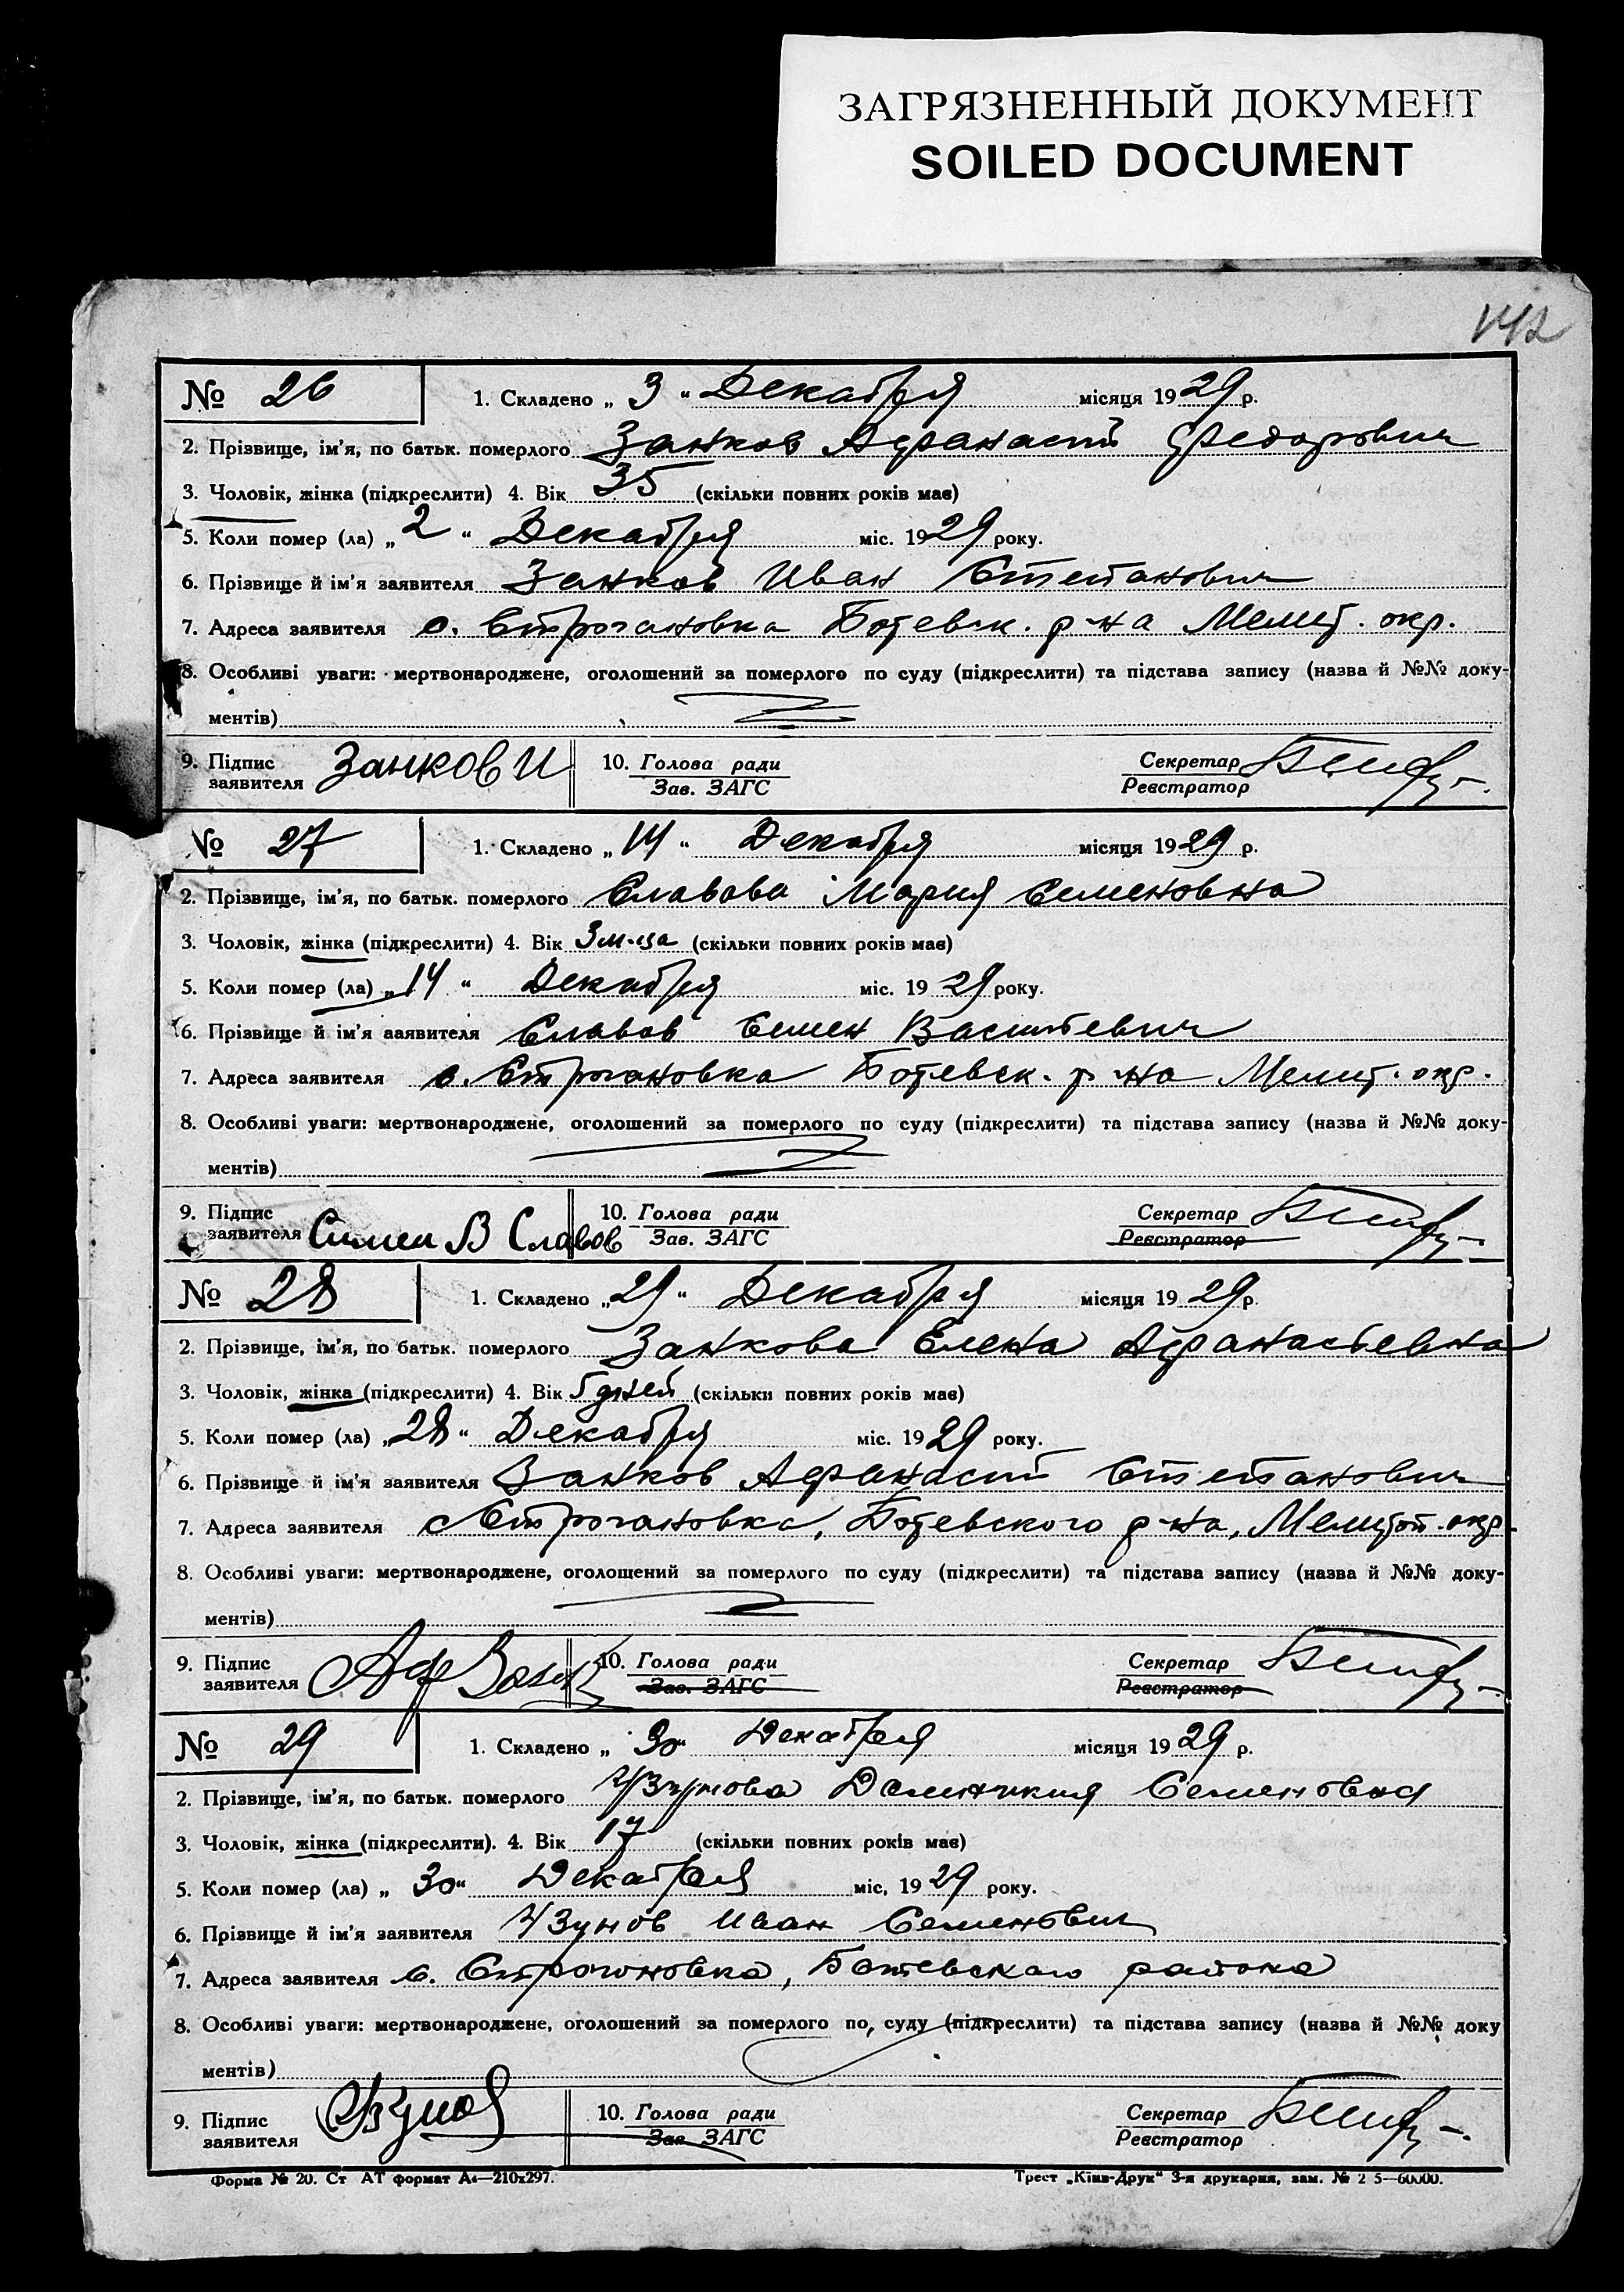 ЗАГРЯЗНЕННЫЙ ДОКУМЕНТ
SOILED DOCUMENT
142
№ 26 1. Складено „ 3 " Декабря місяця 1929 р.
2. Прізвище, ім'я, по батьк. померлого Занков Афанасий Федорович
3. Чоловік, жінка (підкреслити) 4. Вік 35 (скільки повних років має)
5. Коли помер (ла) „ 2 " Декабря міс. 1929 року.
6. Прізвище й ім'я заявителя Занков Иван Степанович
7. Адреса заявителя с. Строгановка Ботевск. р-на Мелит. окр.
8. Особливі уваги: мертвонароджене, оголошений за померлого по суду (підкреслити) та підстава запису (назва й №№ доку-
ментів)
9. Підпис заявителя Занков И 10. Голова ради Зав. ЗАГС Секретар Реєстратор
№ 27 1. Складено „ 14 " Декабря місяця 1929 р.
2. Прізвище, ім'я, по батьк. померлого Славова Мария Семеновна
3. Чоловік, жінка (підкреслити) 4. Вік 3 м-ца (скільки повних років має)
5. Коли помер (ла) „ 14 " Декабря міс. 1929 року.
6. Прізвище й ім'я заявителя Славов Семен Васильевич
7. Адреса заявителя с. Строгановка Ботевск. р-на Мелит. окр.
8. Особливі уваги: мертвонароджене, оголошений за померлого по суду (підкреслити) та підстава запису (назва й №№ доку-
ментів)
9. Підпис заявителя Симен В Славов 10. Голова ради Зав. ЗАГС Секретар Реєстратор
№ 28 1. Складено „ 29 " Декабря місяця 1929 р.
2. Прізвище, ім'я, по батьк. померлого Занкова Елена Афанасьевна
3. Чоловік, жінка (підкреслити) 4. Вік 5 дней (скільки повних років має)
5. Коли помер (ла) „ 28 " Декабря міс. 1929 року.
6. Прізвище й ім'я заявителя Занков Афанасий Степанович
7. Адреса заявителя с Строгановка, Ботевского р-на, Мелитоп. окр.
8. Особливі уваги: мертвонароджене, оголошений за померлого по суду (підкреслити) та підстава запису (назва й №№ доку-
ментів)
9. Підпис заявителя 10. Голова ради Зав. ЗАГС Секретар Реєстратор
№ 29 1. Складено „ 30 " Декабря місяця 1929 р.
2. Прізвище, ім'я, по батьк. померлого Узунова Семеновна
3. Чоловік, жінка (підкреслити). 4. Вік 17 (скільки повних років має)
5. Коли помер (ла) „ 30 " Декабря міс, 1929 року.
6. Прізвище й ім'я заявителя Узунов Иван Семенович
7. Адреса заявителя с. Строгоновка, Ботевского района
8. Особливі уваги: мертвонароджене, оголошений за померлого по суду (підкреслити) та підстава запису (назва й №№ доку
ментів)
9. Підпис заявителя Узунов 10. Голова ради Зав. ЗАГС Секретар Реєстратор
Форма № 20. Ст АТ формат А4—210х297. Трест „Київ-Друк" 3-я друкарня, зам. №